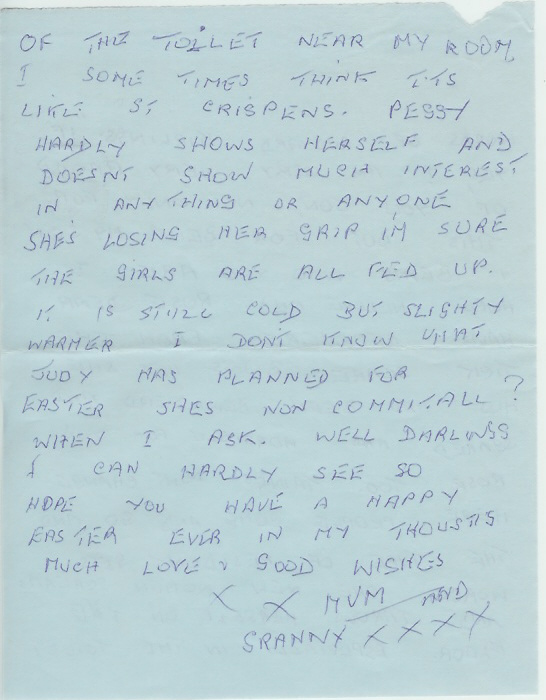 OF THE TOILET NEAR MY ROOM,
I SOME TIMES THINK ITS
LIKE ST CRISPENS. PEGGY
HARDLY SHOWS HERSELF AND
DOESNT SHOW MUCH INTEREST
IN ANY THING OR ANYONE
SHES LOSING HER GRIP IM SURE
THE GIRLS ARE ALL FED UP.
IT IS STILL COLD BUT SLIGHTY
WARMER I DONT KNOW WHAT
JUDY HAS PLANNED FOR
EASTER SHES NON COMMITALL ?
WHEN I ASK. WELL DARLINGS
I CAN HARDLY SEE SO
HOPE YOU HAVE A HAPPY
EASTER EVER IN MY THOUGTS
MUCH LOVE & GOOD WISHES
X X MUM AND
GRANNY X X X X